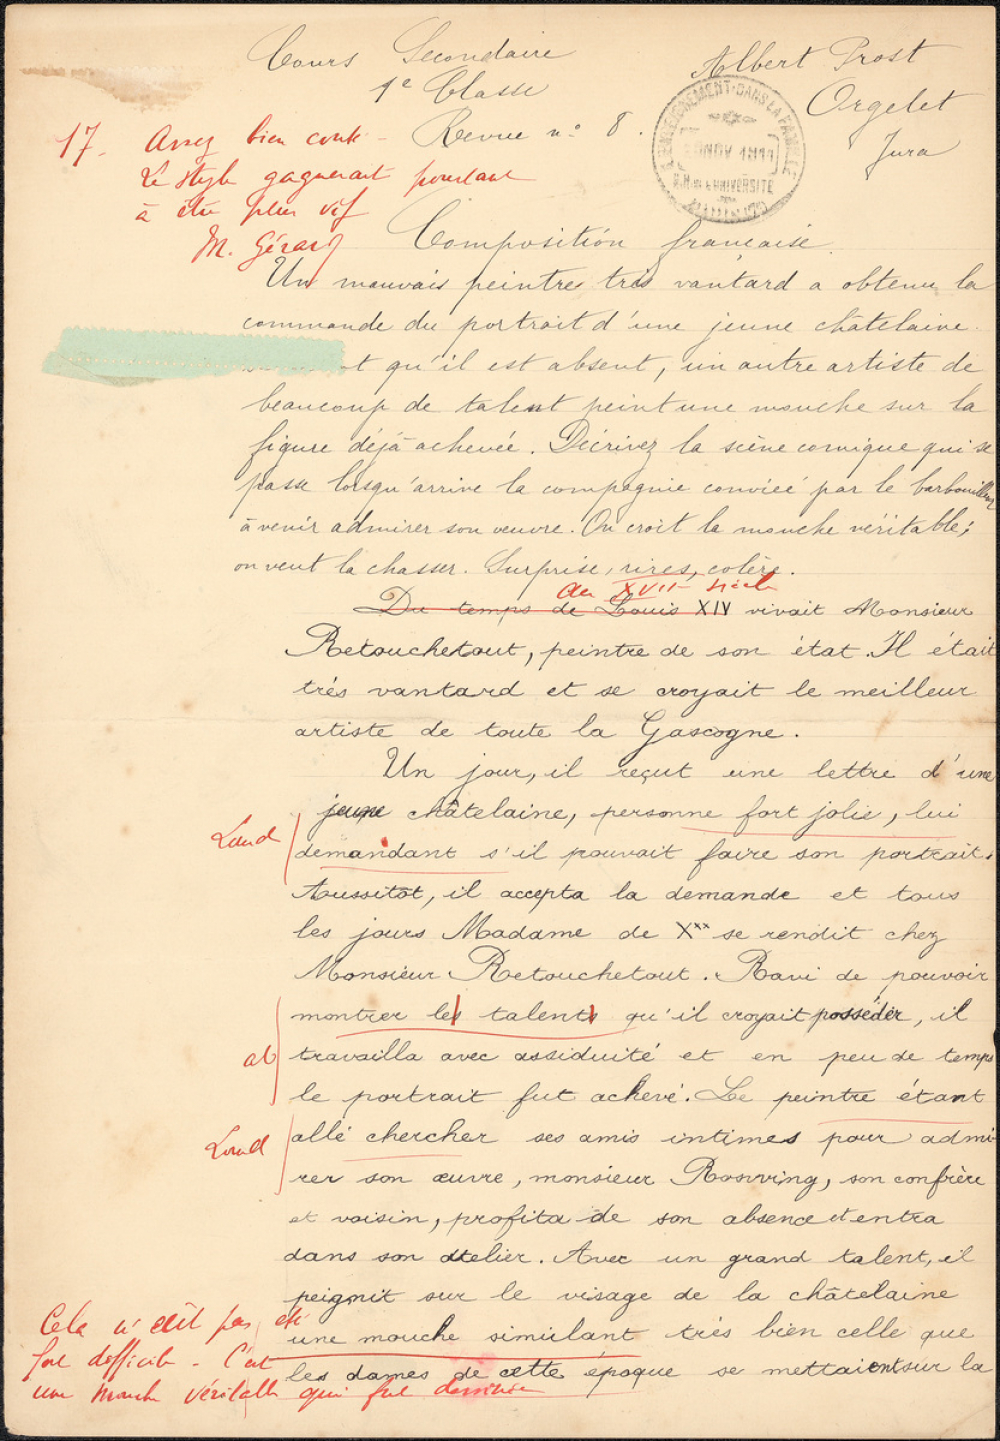 Cours Secondaire
1e Classe
Revue no 8.
Albert Prost
Orgelet
Jura
L'ENSEIGNEMENT DANS LA FAMILLE
NOV 1911
17. Assez bien conté -
Le style gagnerait pourtant
à être plus vif
M. Gérard
Composition française.
Un mauvais peintre très vantard a obtenu la
commande du portrait d'une jeune châtelaine.
t qu'il est absent, un autre artiste de
beaucoup de talent peint une mouche sur la
figure déjà achevée. Décrivez la scène comique qui se
passe lorsqu'arrive la compagnie conviée par le barbouilleur
à venir admirer son oeuvre. On croit la mouche véritable;
on veut la chasser. Surprise, rires, colère.
Au XVIIe siècle
Du temps de Louis XIV vivait Monsieur
Retouchetout, peintre de son état. Il était
très vantard et se croyait le meilleur
artiste de toute la Gascogne.
Un jour, il reçut une lettre d'une
jeune châtelaine, personne fort jolie, lui
Lourd
demandant s'il pouvait faire son portrait.
Aussitôt, il accepta la demande et tous
les jours Madame de Xxx se rendit chez
Monsieur Retouchetout. Ravi de pouvoir
montrer les talents qu'il croyait posséder, il
al
travailla avec assiduité et en peu de temps
le portrait fut achevé. Le peintre étant
Lourd
allé chercher ses amis intimes pour admi
rer son œuvre, monsieur , son confrère
et voisin, profita de son absence et entra
dans son atelier. Avec un grand talent, il
peignit sur le visage de la châtelaine
une mouche simulant très bien celle que
les dames de cette époque se mettaient sur la
Cela n'eût pas été
fort difficile - C'est
une mouche véritable qui fut dessinée